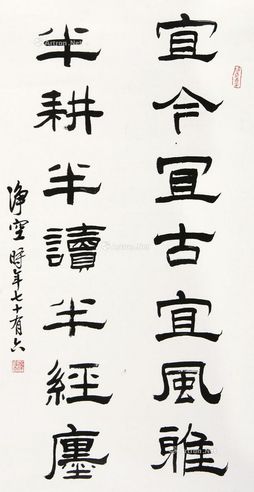 宜今冝古宜風雅
半耕半讀半經廛
淨空 時年七十有六